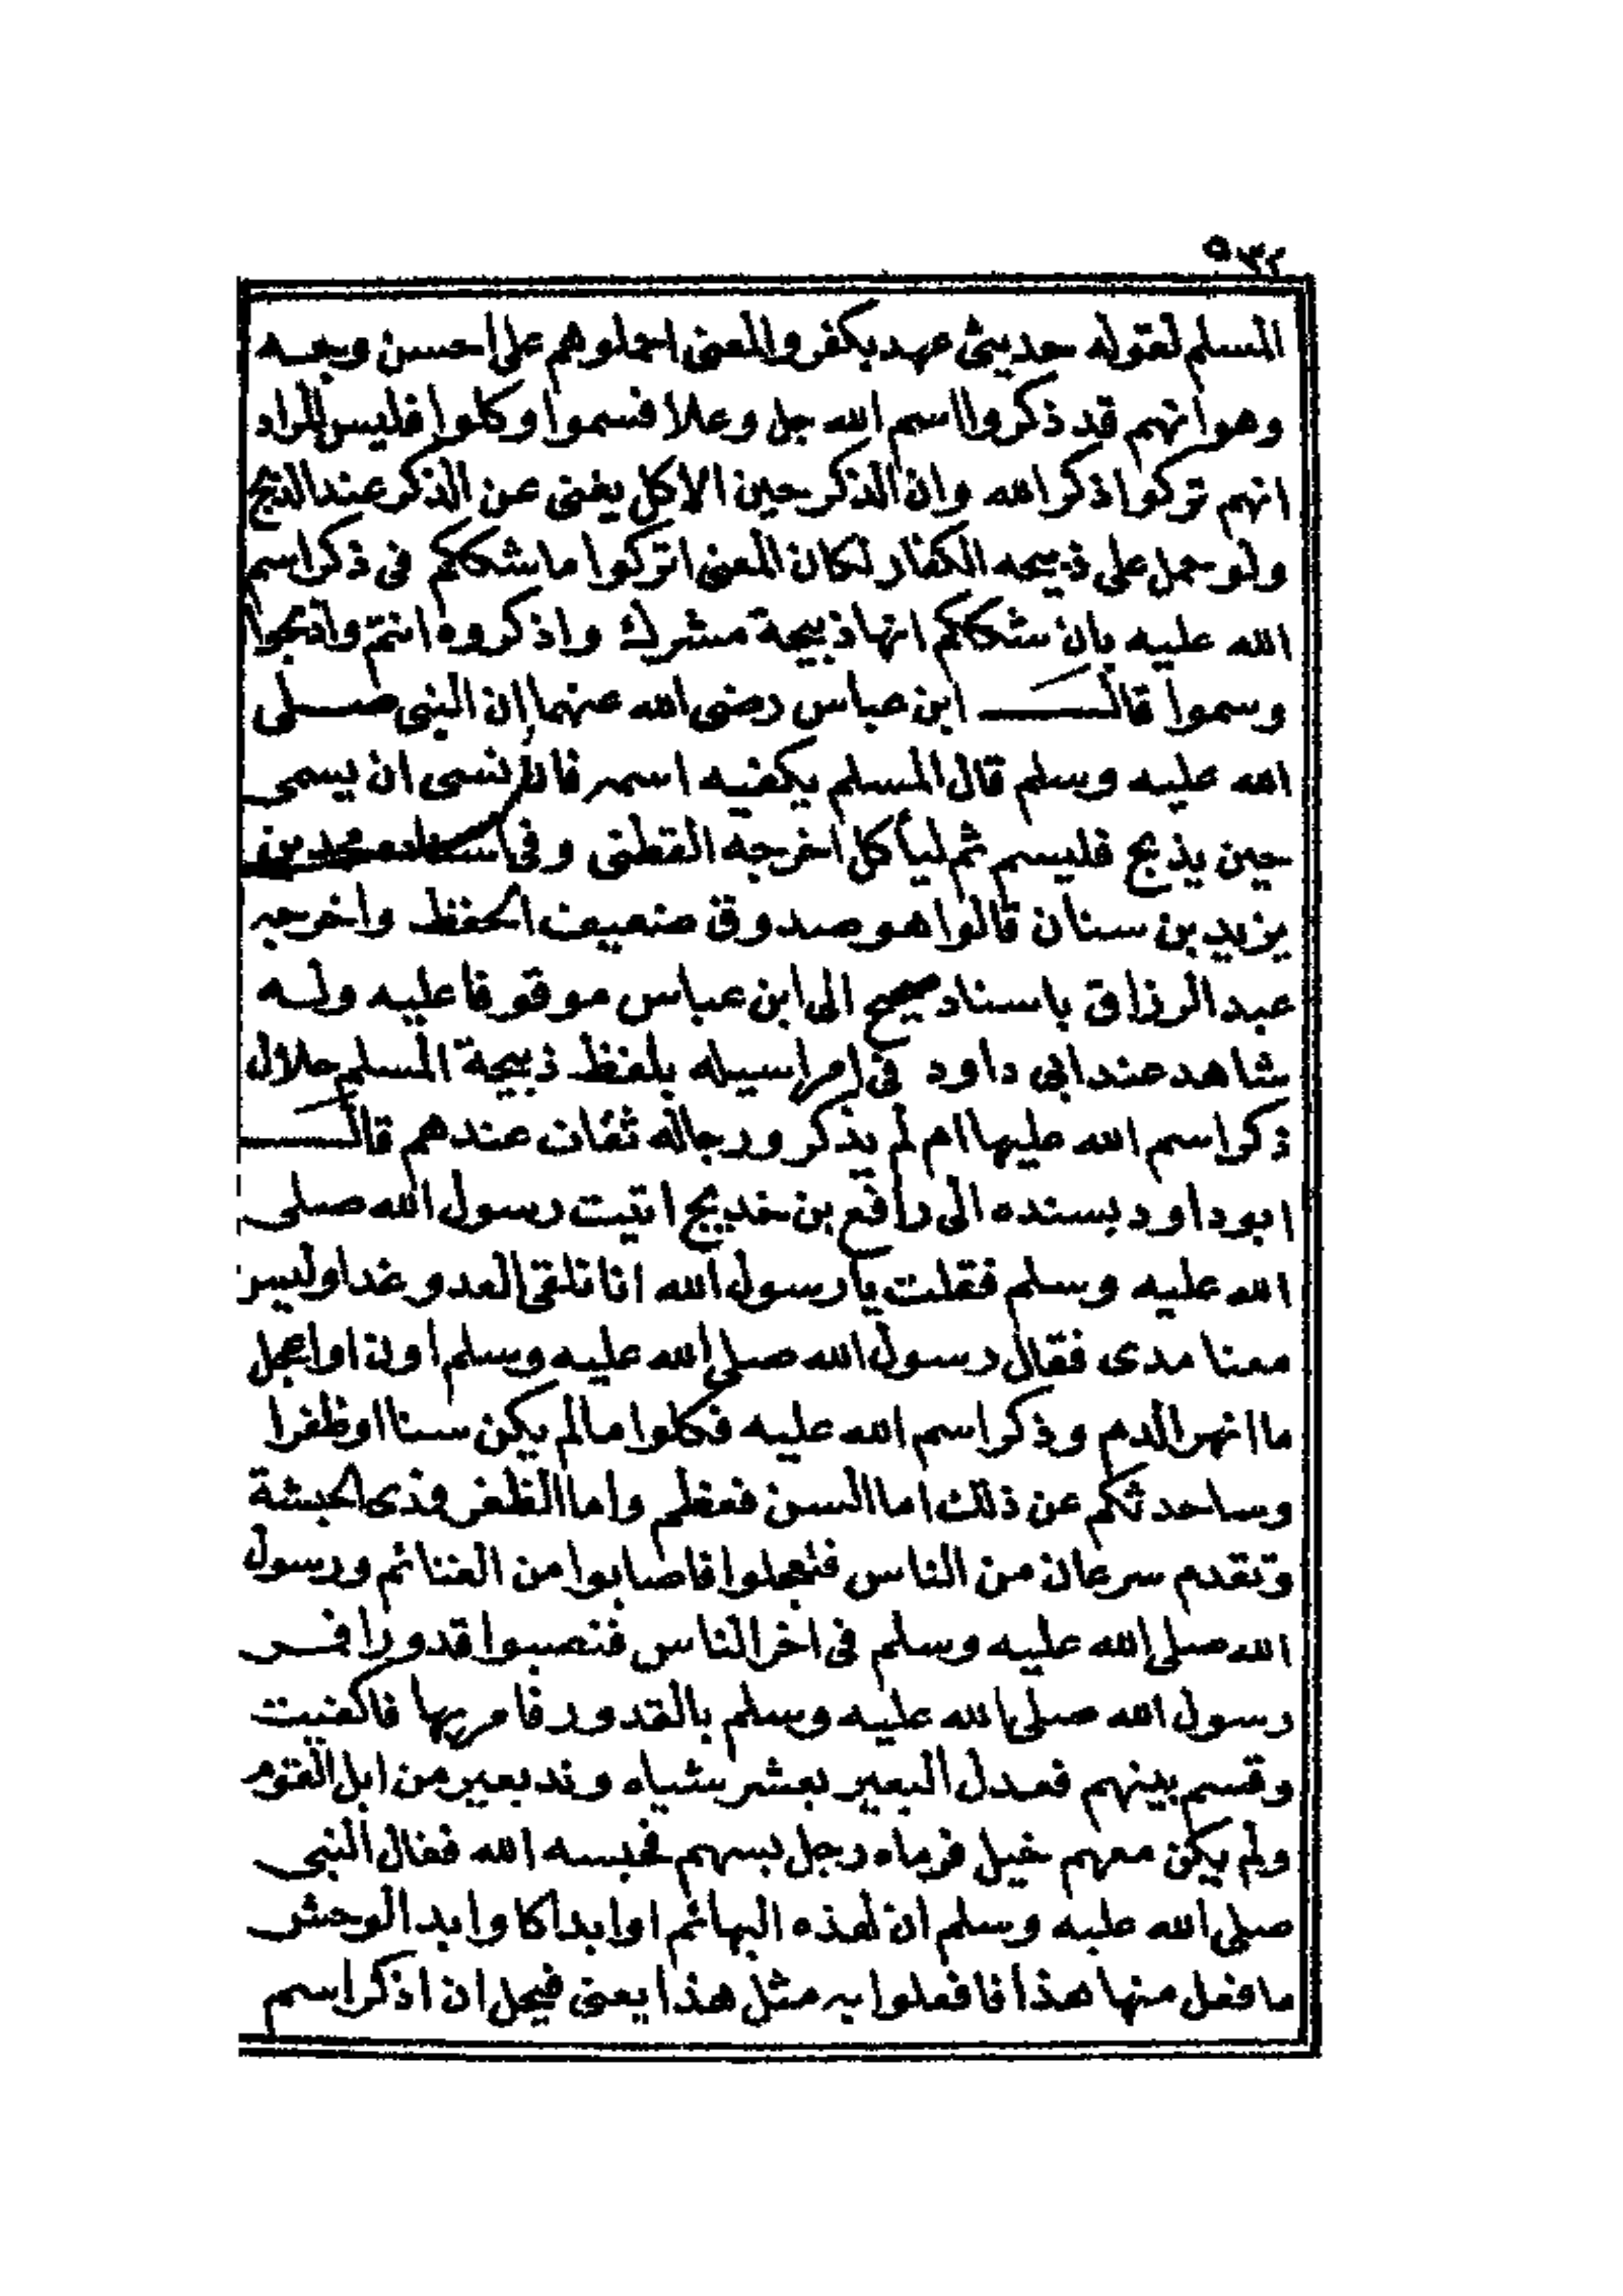 ٥٣٢
المسلم لقوله حديثي عهد بكفر والمعنى احملوهم على احسن وجه
وهوانهم قد ذكروا اسم الله جل وعلا فسموا وكلوا فليس المراد
انهم تركوا ذكر الله وان الذكر حين الاكل يغنى عن الذكر عند الذبح
ولو حمل على ذبيحه الكفار لكان المعنى اتركوا ما شككم فى ذكر اسم
الله عليه بان شككم انها ذبيحة مشرك واذكروه انتم واذبحوا
وسموا قال ابن عباس رضى الله عنهما ان النبى صلى
الله عليه وسلم قال المسلم يكفيه اسمه فان نسى ان يسمى
حين يذبح فليسم ثم ليأكل اخرجه القطنى وفى اسناده محمد بن
يزيد بن سنان قالوا هو صدوق ضعيف الحفظ واخرجه
عبد الرزاق باسناد صحيح الى ابن عباس موقوفا عليه وله
شاهد عند ابى داود فى مراسيله بلفظ ذبيحة المسلم حلال
ذكر اسم الله عليها ام لم يذكر ورجاله ثقات عندهم قال
ابو داود بسنده الى رافع بن خديج اتيت رسول الله صلى
الله عليه وسلم فقلت يا رسول الله انا نلقى العدو غدا وليس
معنا مدى فقال رسول الله صلى الله عليه وسلم اون او اعجل
ما انهر الدم وذكر اسم الله عليه فكلوا ما لم يكن سنا او ظفرا
وساحدثكم عن ذلك اما السن فعظم واما الظفر فذى الحبشة
وتقدم سرعان من الناس فتعجلوا فاصابوا من الغنائم ورسول
الله صلى الله عليه وسلم فى اخر الناس فنصبوا قدورا فمر
رسول الله صلى الله عليه وسلم بالقدور فامر بها فاكفيت
وقسم بينهم فعدل البعير بعشر شياه وند بعير من ابل القوم
ولم يكن معهم خيل فرماه رجل بسهم فحبسه الله فقال النبى
صلى الله عليه وسلم ان لهذه البهائم اوابد اكاوابد الوحش
ما فعل منها هذا فافعلوا به مثل هذا يعنى فيحل ان اذكر اسم